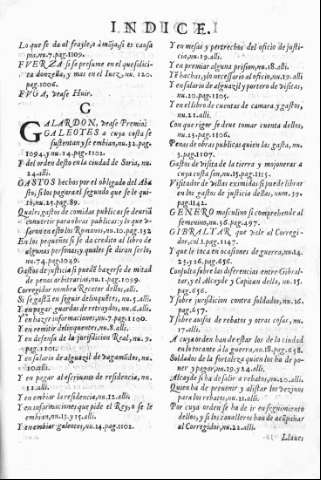 INDICE.
Lo que se da al frayle, o à mõja, si es causa
pia, nu.7. pag.1109.
FVERZA si se presume en el que solici-
ta donzella, y mas en el Iuez, nu. 120.
pag.1006.
FVGA, vease Huir.
G
GALARDON, vease Premio.
GALEOTES a cuya costa se
sustentan, y se embian, nu.32. pag.
1094. y nu.14. pag.1102.
Y del orden desto en la ciudad de Soria, nu.
24. alli.
GASTOS hechos por el obligado del Aba
sto, si los pagarà el segundo que se le qui-
ta, nu.25. pag.89.
Quales gastos de comidas publicas se deuriã
conuertir para obras publicas: y lo que de-
sto vsaron los Romanos, nu.10. pag.152
En los pequeños si se da credito al libro de
algunas personas: y quales se dirán serlo,
nu.74. pag.1049.
Gastos de justicia si puedẽ hazerse de mitad
de penas arbitrarias, nu.1. pag.1039.
Corregidor nombra Receptor dellos, alli.
Si se gastã en seguir delinquentes, nu.5. alli.
Y en pagar guardas de retraydos, nu.6. alli.
Y en hazer informaciones, nu.7. pag.1100.
Y en remitir delinquentes, nu.8. alli.
Y en defensa de la jurisdicion Real, nu.9.
pag.1101.
Y en salario de alguazil de vagamũdos, nu.
10. alli.
Y en pagar al escriuano de residencia, nu.
11. alli.
Y en embiar la residencia, nu.12. alli.
Y en informaciones que pide el Rey, o se le
embian, nu.13. y 15. alli.
Y en embiar galeotes, nu.14. pag.1102.
Y en mesas y pertrechos del oficio de justi-
cia, nu.19. alli.
Y en premiar alguna prision, nu.18. alli.
Y hachas, y lo necessario al oficio, nu.19. alli
Y en salario de alguazil y portero de visitas,
nu.20. pag.1105.
Y en el libro de cuentas de camara, y gastos,
nu.21. alli.
Con que rigor se deue tomar cuenta dellos,
nu.23. pag.1106.
Penas de obras publicas quien las gasta, nu.
3. pag.1107.
Gastos de visita de la tierra y mojoneras a
cuya costa son, nu.15. pag.1115.
Visitador de villas eximidas si puede librar
en los gastos de justicia dellas, num.39.
pag.1142.
GENERO masculino si comprehende al
femenino, nu.36. pag.497.
GIBRALTAR que deue al Corregi-
dor, col.2. pag.1147.
Y que le toca en ocasiones de guerra, nu.14.
25. y 26. pag.656.
Consulta sobre las diferencias entre Gibral-
tar, y el Alcayde y Capitan della, nu.15.
pag.656.
Y sobre jurisdicion contra soldados, nu.16.
pag.657.
Y sobre auisos de rebatos y otras cosas, nu.
17. alli.
A cuya orden han de estar los de la ciudad
en lo tocante à la guerra, nu.18. pag.658.
Soldados de la fortaleza quien los ha de po-
ner y pagar, nu.19. y 24. alli.
Alcayde si ha de salir a rebatos, nu.20. alli.
Quien ha de preuenir y alistar los vezinos
para los rebatos, nu.21. alli.
Por cuya orden se ha de ir en seguimiento
dellos, y si los caualleros han de acõpañar
al Corregidor, nu.22. alli.
Llaues